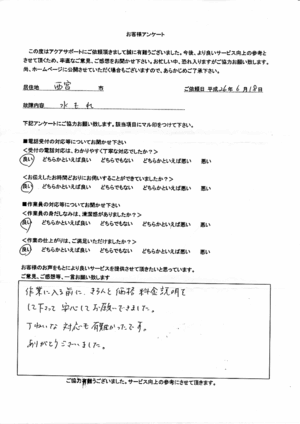 お客様アンケート
この度はアクアサポートにご依頼頂きまして誠に有難うございました。今後、より良いサービス向上の参考と
させて頂くため、率直なご意見、ご感想をお聞かせ下さい。お忙しい中、恐れ入りますがご協力お願い致します。
尚、ホームページに公開させていただく場合もございますので、あらかじめご了承下さい。
居住地 西宮 市 ご依頼日 平成26年6月18日
故障内容 水もれ
下記アンケートにご協力お願い致します。該当項目にマル印をつけて下さい。
■電話受付の対応等についてお聞かせ下さい
<受付の電話対応は、わかりやすく丁寧な対応でしたか?>
良い どちらかといえば良い どちらでもない どちらかといえば悪い 悪い
<お伝えしたお時間どおりにお伺いすることができていましたか?>
良い どちらかといえば良い どちらでもない どちらかといえば悪い 悪い
■作業員の対応等についてお聞かせ下さい
<作業員の身だしなみは、清潔感がありましたか?>
良い どちらかといえば良い どちらでもない どちらかといえば悪い 悪い
<作業の仕上がりは、ご満足いただけましたか?>
良い どちらかといえば良い どちらでもない どちらかといえば悪い 悪い
お客様のお声をもとにより良いサービスを提供させて頂きたいと思っています。
ご意見、ご感想等、一言お願い致します
作業に入る前に、きちんと価格 料金説明を
して下さって 安心してお願いできました。
ていねいな 対応も 有難かったです。
ありがとうございました。
ご協力有難うございました。サービス向上の参考にさせて頂きます。